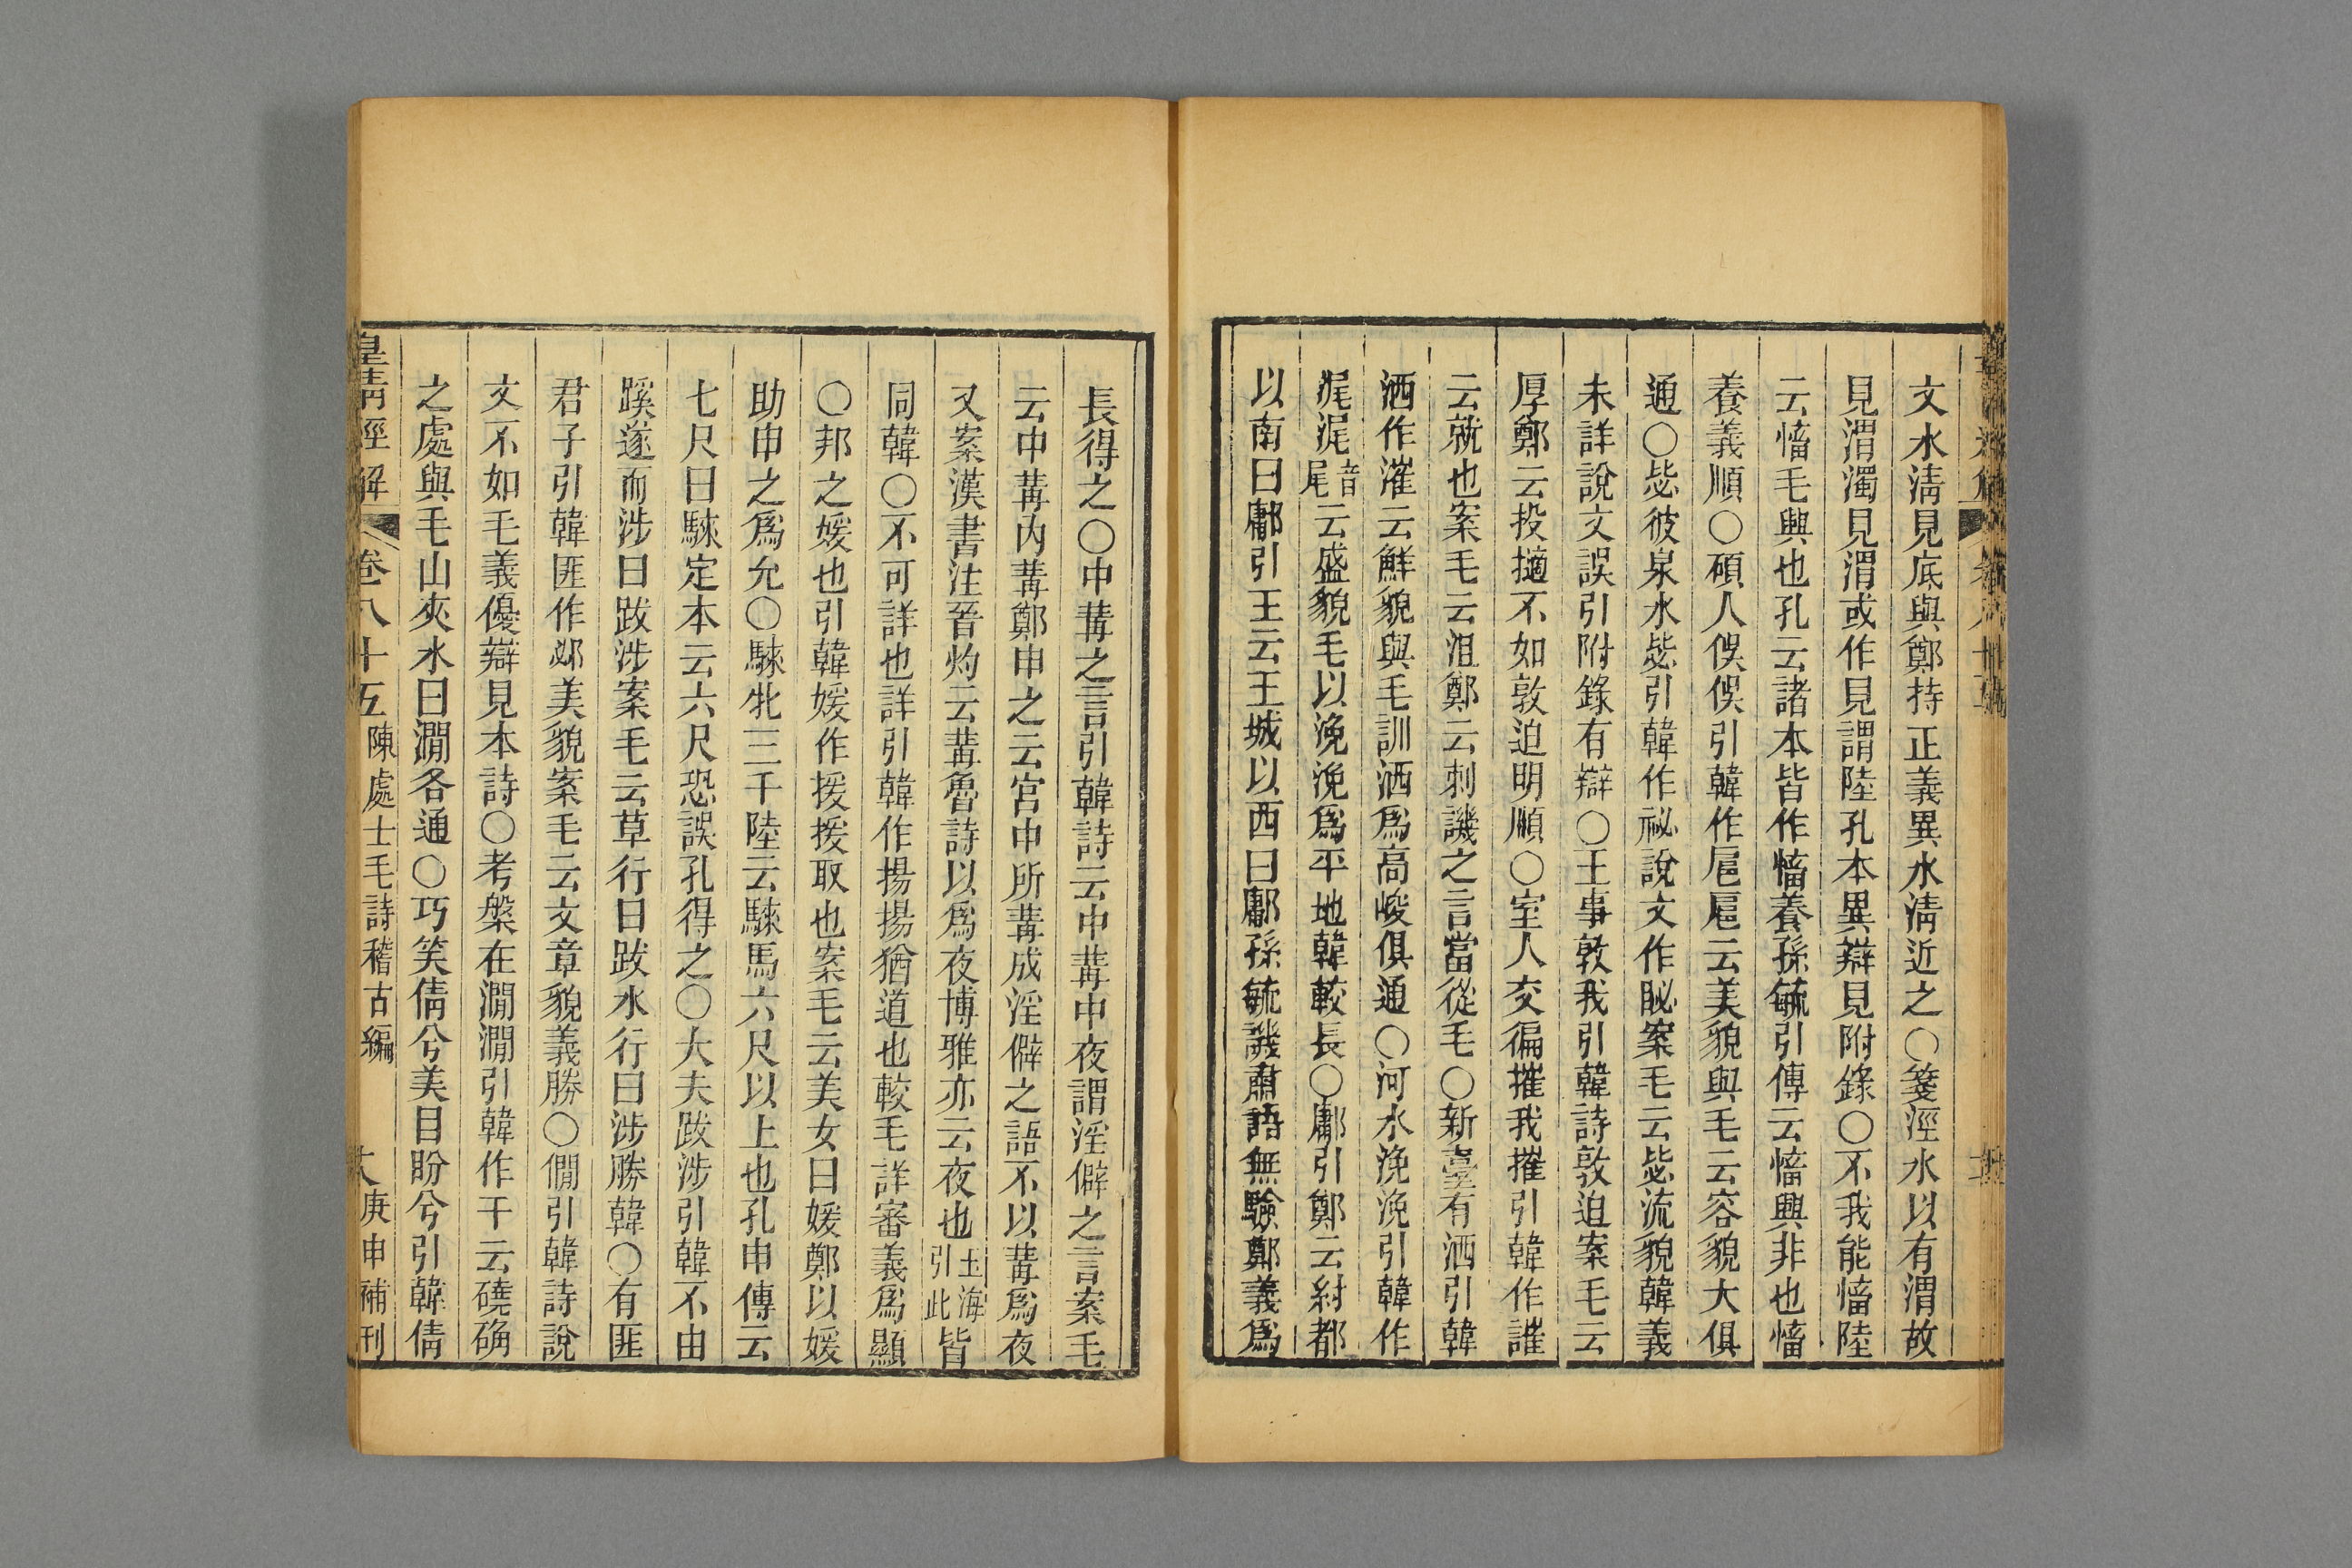 文水淸見底與鄭持正義異水淸近之○箋涇水以有渭故
見渭濁見渭或作見謂陸孔本異辯見附錄○不我能慉陸
云慉毛興也孔云諸本皆作慉養孫毓引傳云慉興非也慉
養義順○碩人俁俁引韓作扈扈云美貌與毛云容貌大俱
通○毖彼泉水毖引韓作祕說文作䀣案毛云毖流貌韓義
未詳說文誤引附錄有辯○王事敦我引韓詩敦迫案毛云
厚鄭云投擿不如敦迫明順○室人交徧摧我摧引韓作讙
云就也案毛云沮鄭云刺譏之言當從毛○新臺有洒引韓
洒作漼云鮮貌與毛訓洒爲高峻俱通○河水浼浼引韓作
浘浘音尾云盛貌毛以浼浼爲平地韓較長○鄘引鄭云紂都
以南曰鄘引王云王城以西曰鄘孫毓譏肅語無驗鄭義爲
長得之○中冓之言引韓詩云中冓中夜謂淫僻之言案毛
云中冓內冓鄭申之云宮中所冓成淫僻之語不以冓爲夜
又案漢書注晉灼云冓魯詩以爲夜博雅亦云夜也玉海引此皆
同韓○不可詳也詳引韓作揚揚猶道也較毛詳審義爲顯
○邦之媛也引韓媛作援援取也案毛云美女曰媛鄭以媛
助申之爲允○騋牝三千陸云騋馬六尺以上也孔申傳云
七尺曰騋定本云六尺恐誤孔得之○大夫跋涉引韓不由
蹊遂而涉曰跋涉案毛云草行曰跋水行曰涉勝韓○有匪
君子引韓匪作邲美貌案毛云文章貌義勝○僩引韓詩說
文不如毛義優辯見本詩○考槃在澗澗引韓作干云磽确
之處與毛山夾水曰澗各通○巧笑倩兮美目盼兮引韓倩
皇淸經解 卷八十五 陳處士毛詩稽古編 庚申補刊